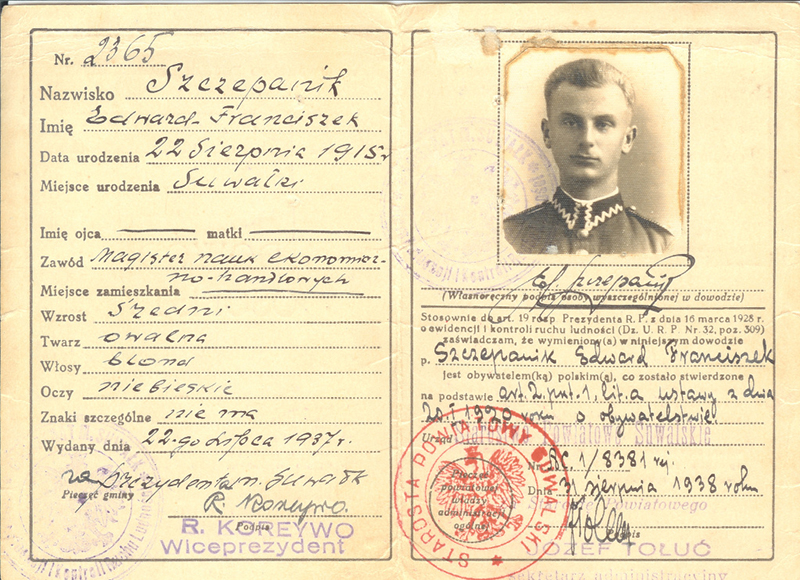 Nr. 2365
Nazwisko Szczepanik
Imię Edward Franciszek
Data urodzenia 22 Sierpnia 1915 r
Miejsce urodzenia Suwałki
Imię ojca matki
Zawód Magister nauk ekonomicz-
no-handlowych
Miejsce zamieszkania
Wzrost średni
Twarz owalna
Włosy blond
Oczy niebieskie
Znaki szczególne nie ma
Wydany dnia 22-go Lipca 1937 r.
za Prezydenta m. Suwałk
Pieczęć gminy
R. Koreywo.
Podpis
R. KOREYWO
Wiceprezydent
Ed. Szczepanik
(Własnoręczny podpis osoby wyszczególnionej w dowodzie)
Stosownie do art. 19 rozp. Prezydenta R. P. z dnia 16 marca 1928 r.
o ewidencji i kontroli ruchu ludności (Dz. U. R. P. Nr. 32, poz. 309)
zaświadczam, że wymieniony(a) w niniejszym dowodzie
p. Szczepanik Edward Franciszek
jest obywatelem(ką) polskim(ą), co zostało stwierdzone
na podstawie art. 2 pkt. 1. lit. a ustawy z dnia
20.I 1920 roku o obywatelstwie.
Urząd Powiatowe Suwalskie
Nr. 1/8381 rej.
Dnia 31 sierpnia 1938 roku
Powiatowego
Pieczęć
powiatowej
władzy
administracji
ogólnej
STAROSTA POWIATOWY SUWALSKI
JÓZEF TOŁUĆ
sekretarz administracyjny